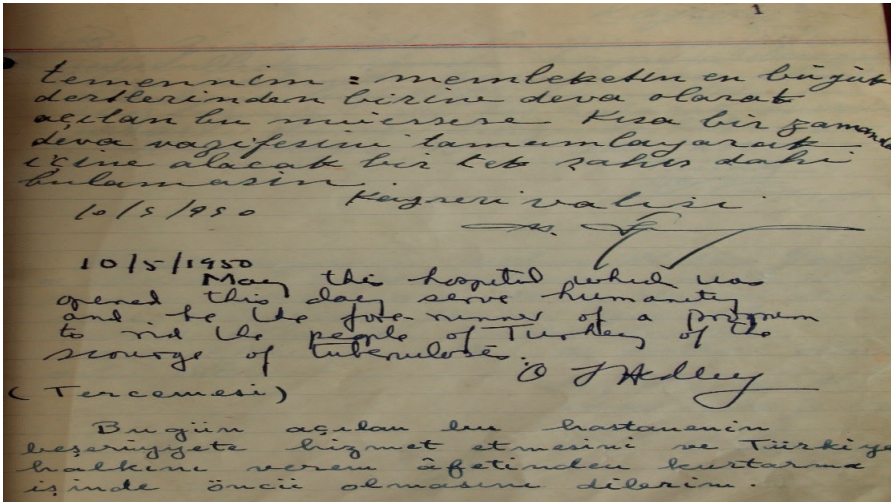 1
temennim : memleketin en büyük
dertlerinden birine deva olarak
açılan bu müessese kısa bir zamanda
deva vazifesini tamamlayarak
içine alacak bir tek şahıs dahi
bulamasın.
Kayseri valisi
10/5/950
10/5/1950
May this hospital which was
opened this day serve humanity
and be the fore-runner of a program
to rid the people of Turkey of the
scourge of tuberculosis.
O F Hedley
(Tercemesi)
Bugün açılan bu hastanenin
beşeriyyete hizmet etmesini ve Türkiye
halkını verem âfetinden kurtarma
işinde öncü olmasını dilerim.